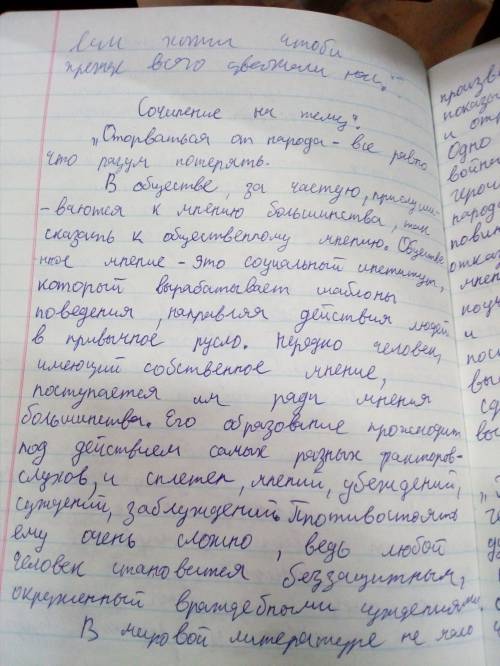 хотим чтобы
прежде всего уважали нас."
произв
Сочинение на тему:
показа
„Оторваться от народа - все равно
и отр
что разум потерять.
Одно
В обществе, за частую, прислуши-
война
-ваются к мнению большинства, так
герои
сказать к общественному мнению. Обществе
народа
нное мнение - это социальный институт,
пови
который вырабатывает шаблоны
отказ
поведения, направляя действия людей
мнен
в привычное русло. Нередко человек,
поуч
имеющий собственное мнение,
и
поступается им ради мнения
посл
большинства. Его образование происходит
вы
под действием самых разных факторов-
сд
слухов, и сплетен, мнений, убеждений,
вы
суждений, заблуждений. Противостоять
ему очень сложно, ведь любой
человек становится беззащитным,
окруженный враждебными суждениями.
В мировой литературе не мало